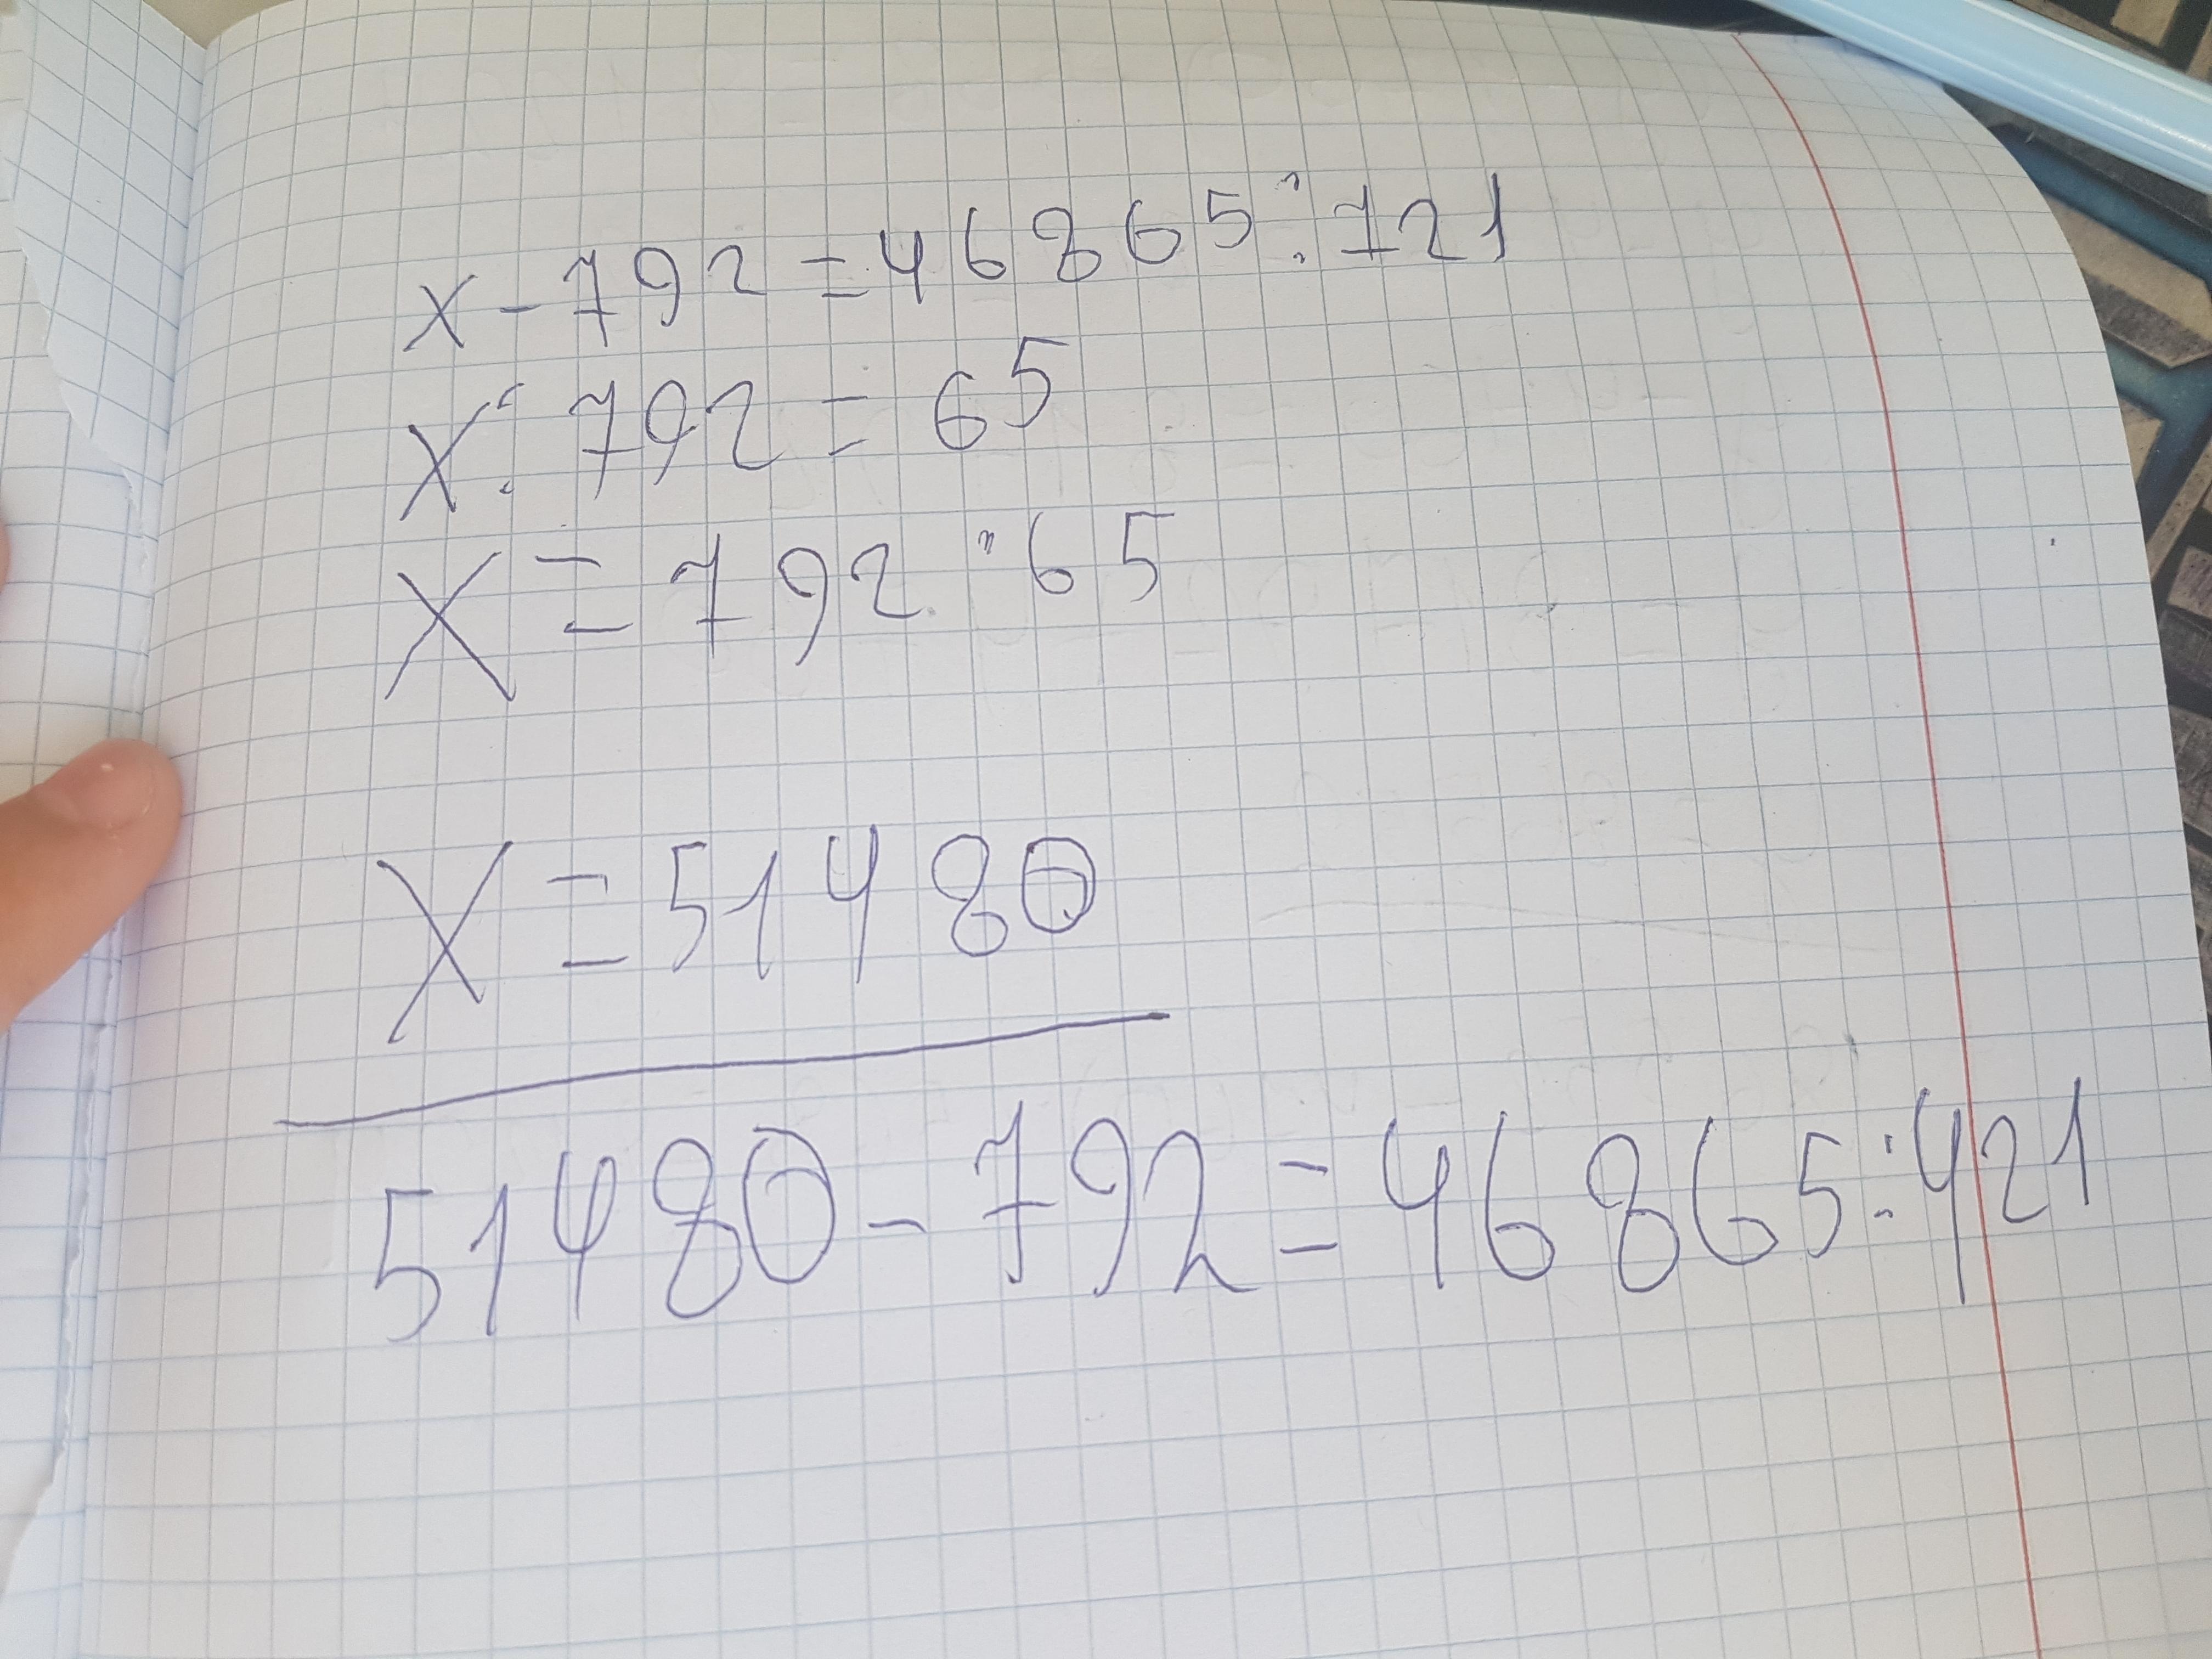 x - 792 = 46865 : 721
x : 792 = 65
x = 792 · 65
x = 51480
51480 - 792 = 46865 : 421